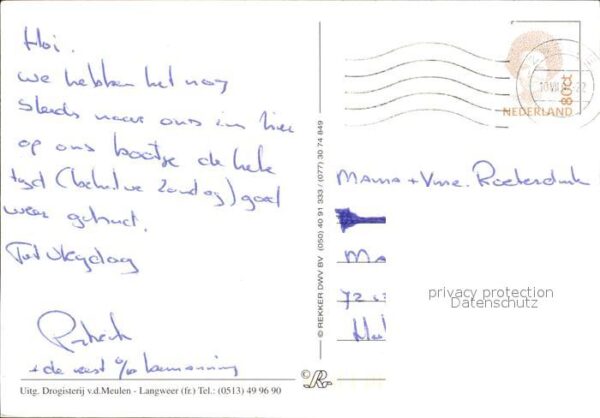 Hoi.
we hebben het nog
steeds naar ons zin hier
op ons bootje de hele
tyd (behalve Zondag) goed
weer gehad.
Tot Vrydag
Patrick
+ de rest v/d bemanning
Uitg. Drogisterij v.d.Meulen - Langweer (fr.) Tel.: (0513) 49 96 90
© REKKER DWV BV (050) 40 91 333 / (077) 30 74 849
80ct
NEDERLAND
Mama +
Ma
72
privacy protection
Datenschutz